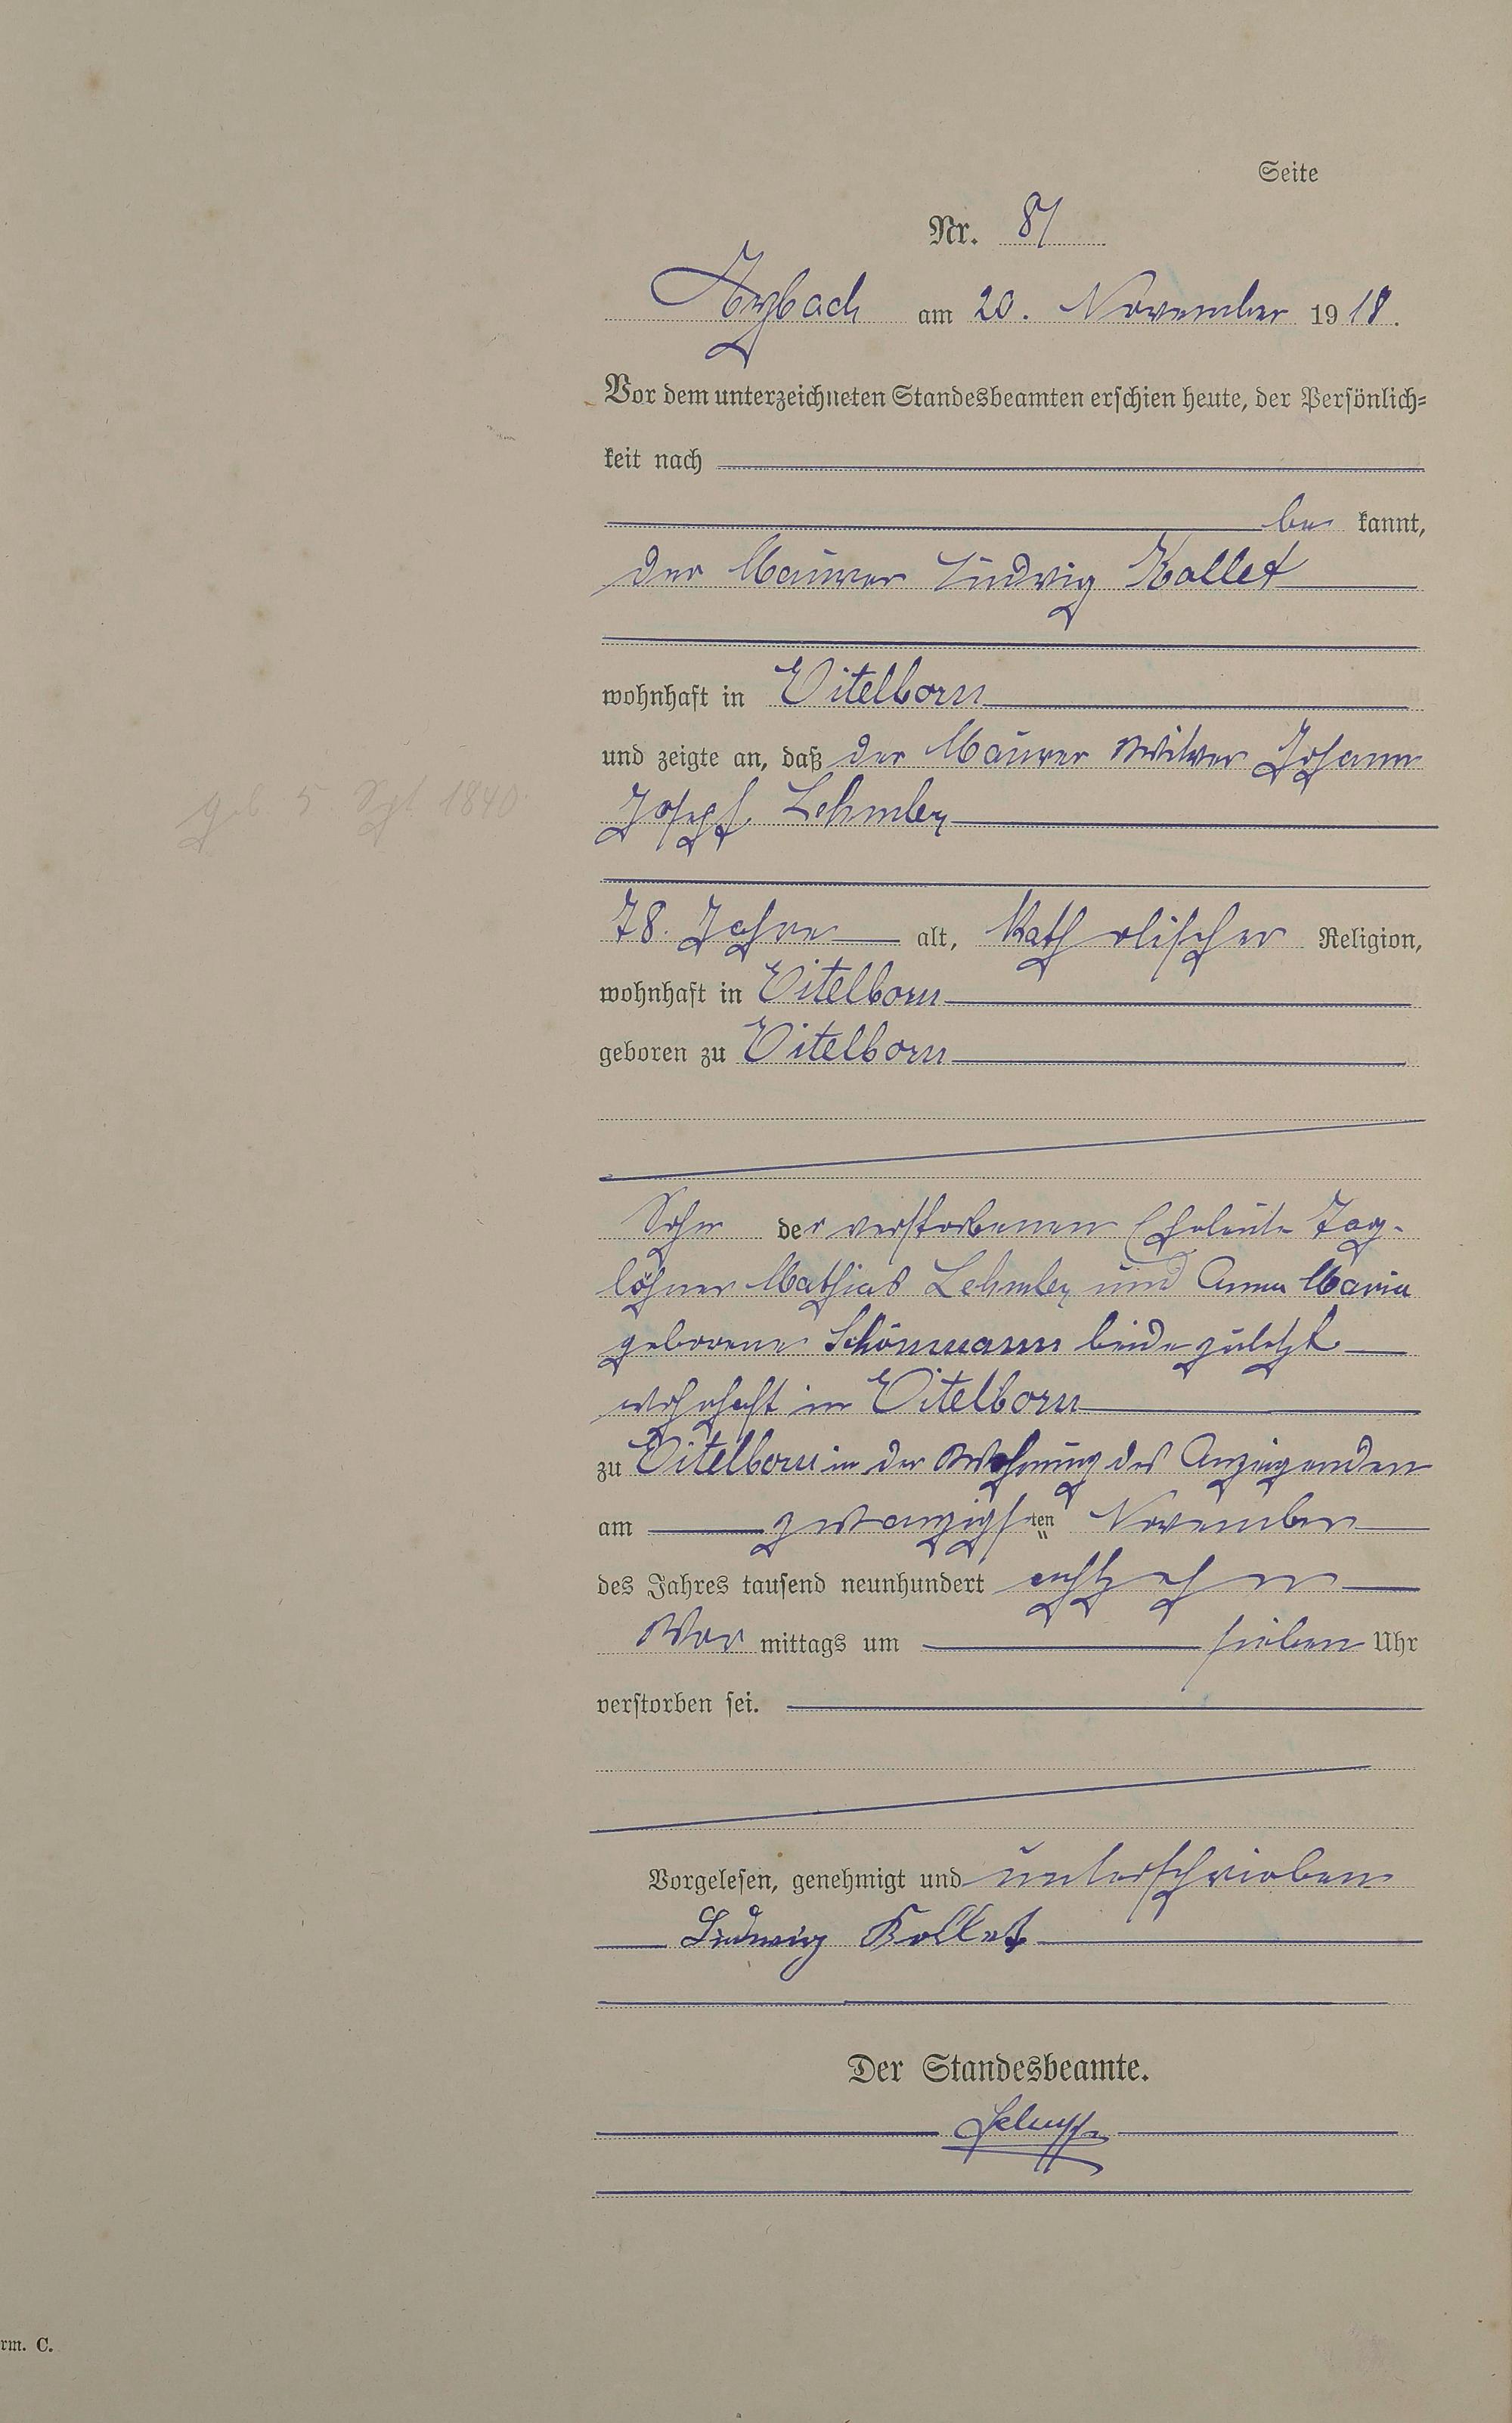 Seite
Nr. 81
Arzbach am 20. November 1918.
Vor dem unterzeichneten Standesbeamten erschien heute, der Persönlich=
keit nach
be kannt,
der Maurer Ludwig Kollet
wohnhaft in Eitelborn
und zeigte an, daß der Maurer Witwer Johann
Josef Lehmler
geb 5 Spt 1840.
78. Jahre alt, katholischer Religion,
wohnhaft in Eitelborn
geboren zu Eitelborn
Sohn der verstorbenen Eheleute Tag-
löhner Mathias Lehmler und Anna Maria
geborene Schönmann beide zuletzt
wohnhaft in Eitelborn
zu Eitelborn in der Wohnung des Anzeigenden
am zwanzigsten November
des Jahres tausend neunhundert achtzehn
Vor mittags um sieben Uhr
verstorben sei.
Vorgelesen, genehmigt und unterschrieben
Ludwig Kollet
Der Standesbeamte.
rm. C.